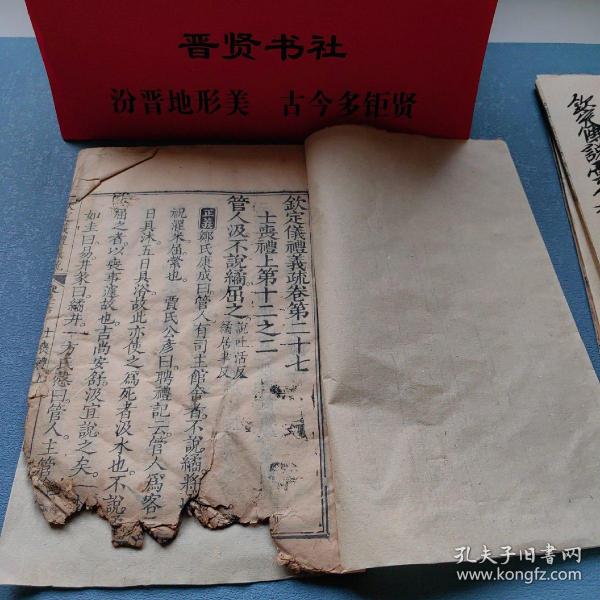 晋贤书社
汾晋地形美 古今多钜贤
欽定儀禮義疏卷第二十七
士喪禮上第十二之二
管人汲不說繘屈之
說吐活反
繘居聿反
正義 鄭氏康成曰管人有司主館舍者不說繘將以
祝濯米屈縈也 賈氏公彥曰聘禮記云管人爲客
日具沐五日具浴故此亦使之爲死者汲水也不說
屈之者以喪事遽故也吉尚安舒汲宜說之矣
如圭曰易井彖曰繘井 方氏慤曰管人主管
欽定傳說彙
孔夫子旧书网
www.kongfz.com